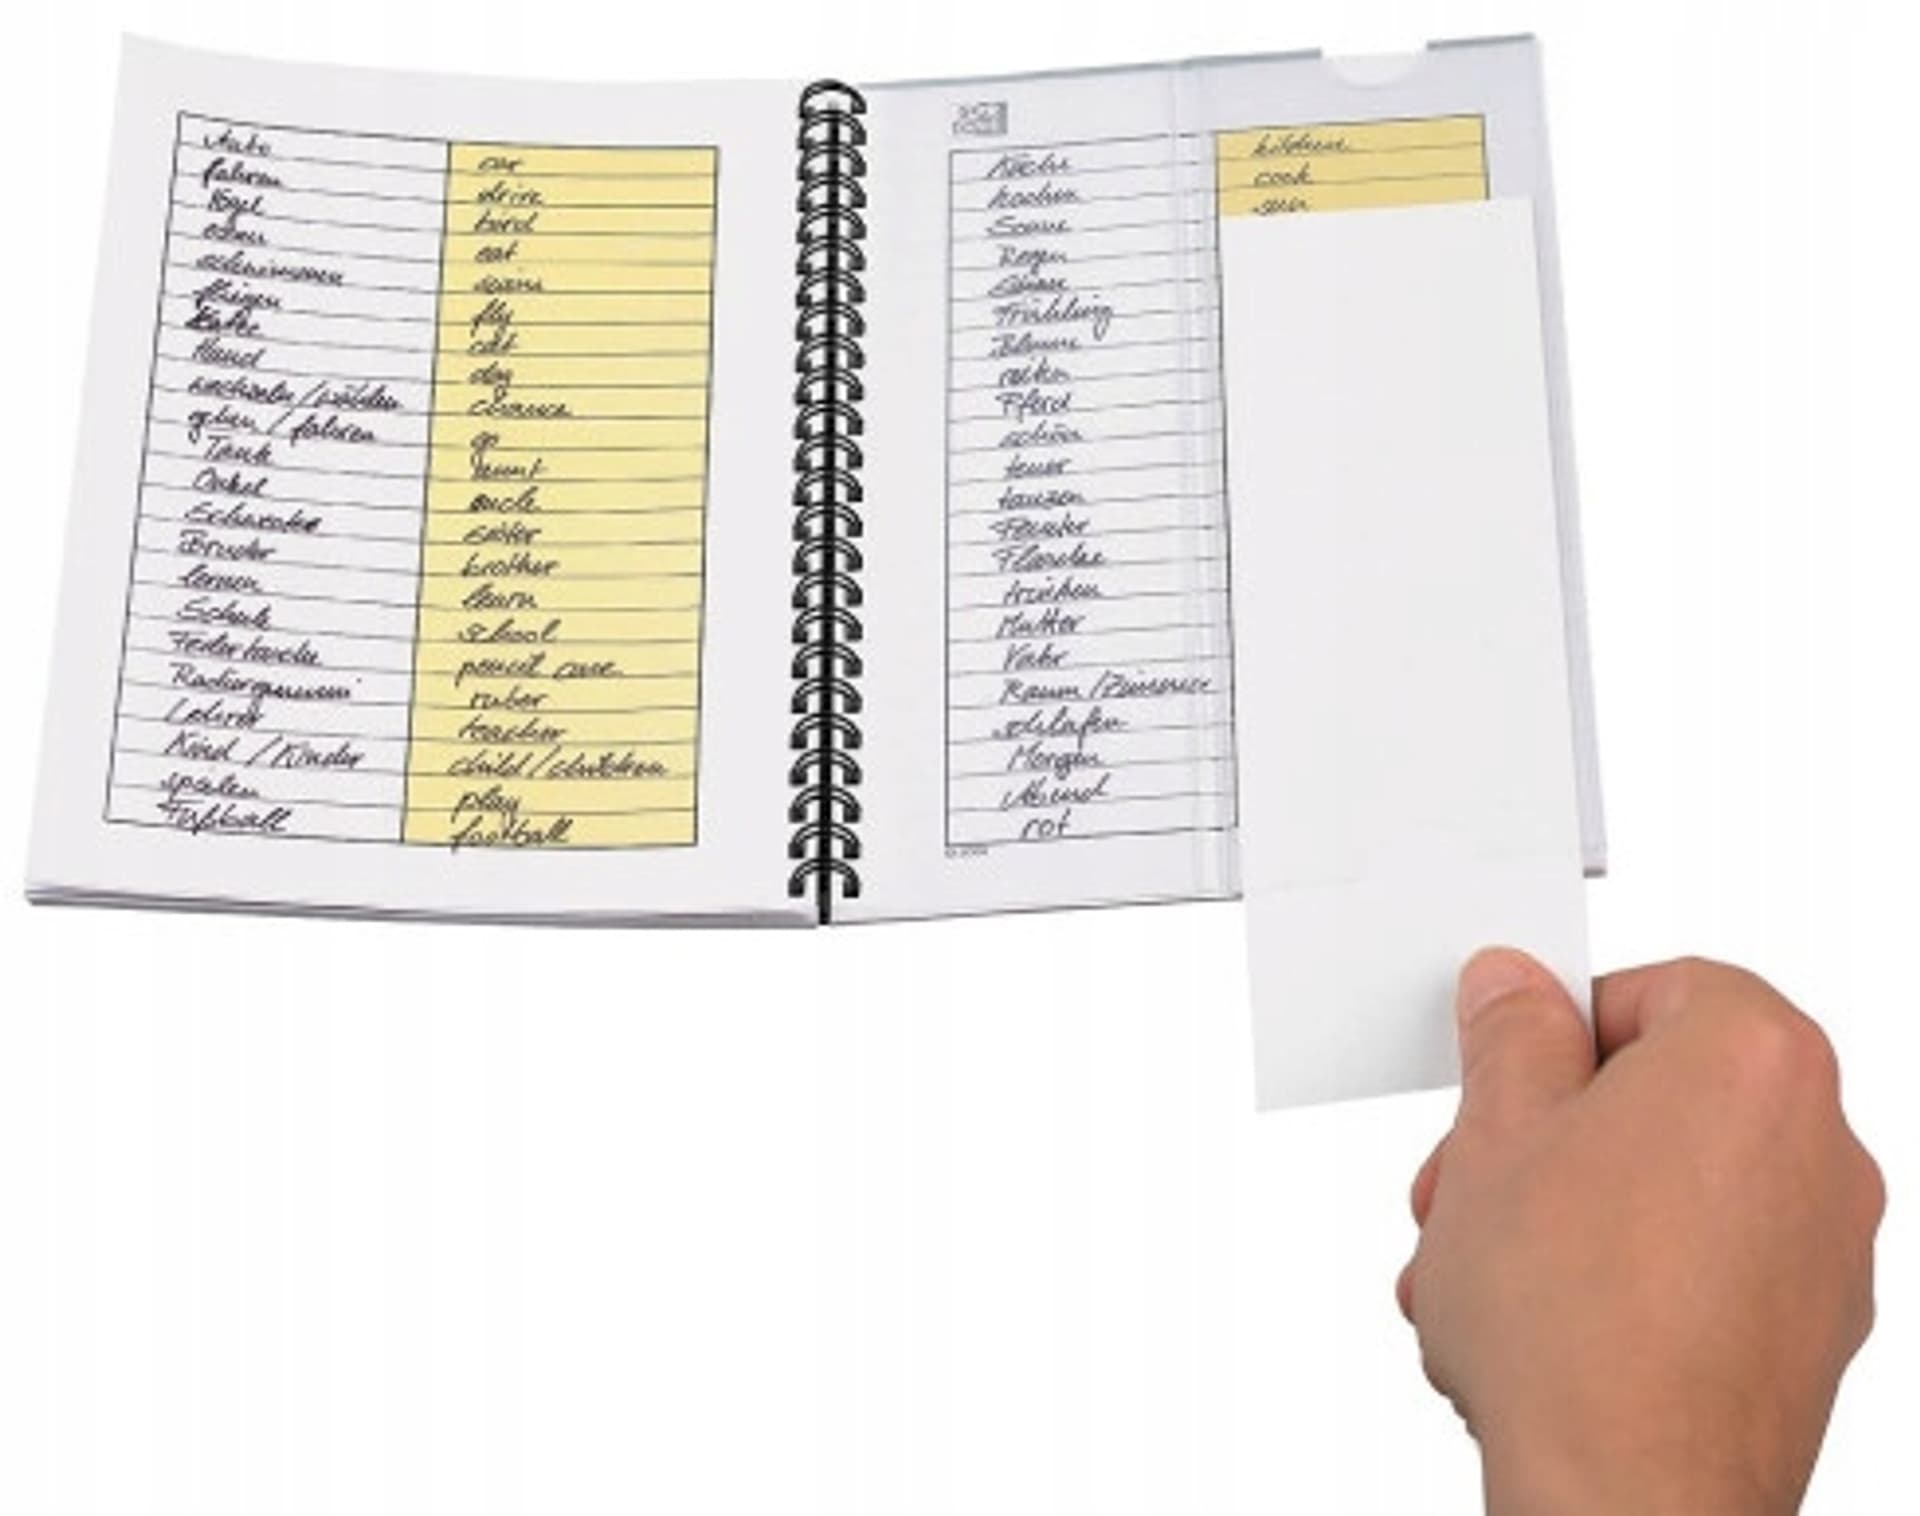 Auto car
fahren drive
Vogel bird
essen eat
schwimmen swim
fliegen fly
Katze cat
Hund dog
wechseln / wählen chance
gehen / fahren go
Tank
Onkel uncle
Schwester sister
Bruder brother
lernen learn
Schule school
Federtasche pencil case
Radiergummi ruber
Lehrer teacher
Kind / Kinder child / children
spielen play
Fußball football
Küche kitchen
kochen cook
Sonne sun
Regen
Frühling
Blume
reiten
Pferd
schön
teuer
tanzen
Fenster
Flasche
trinken
Mutter
Vater
Raum / Zimmer
schlafen
Morgen
Abend
rot